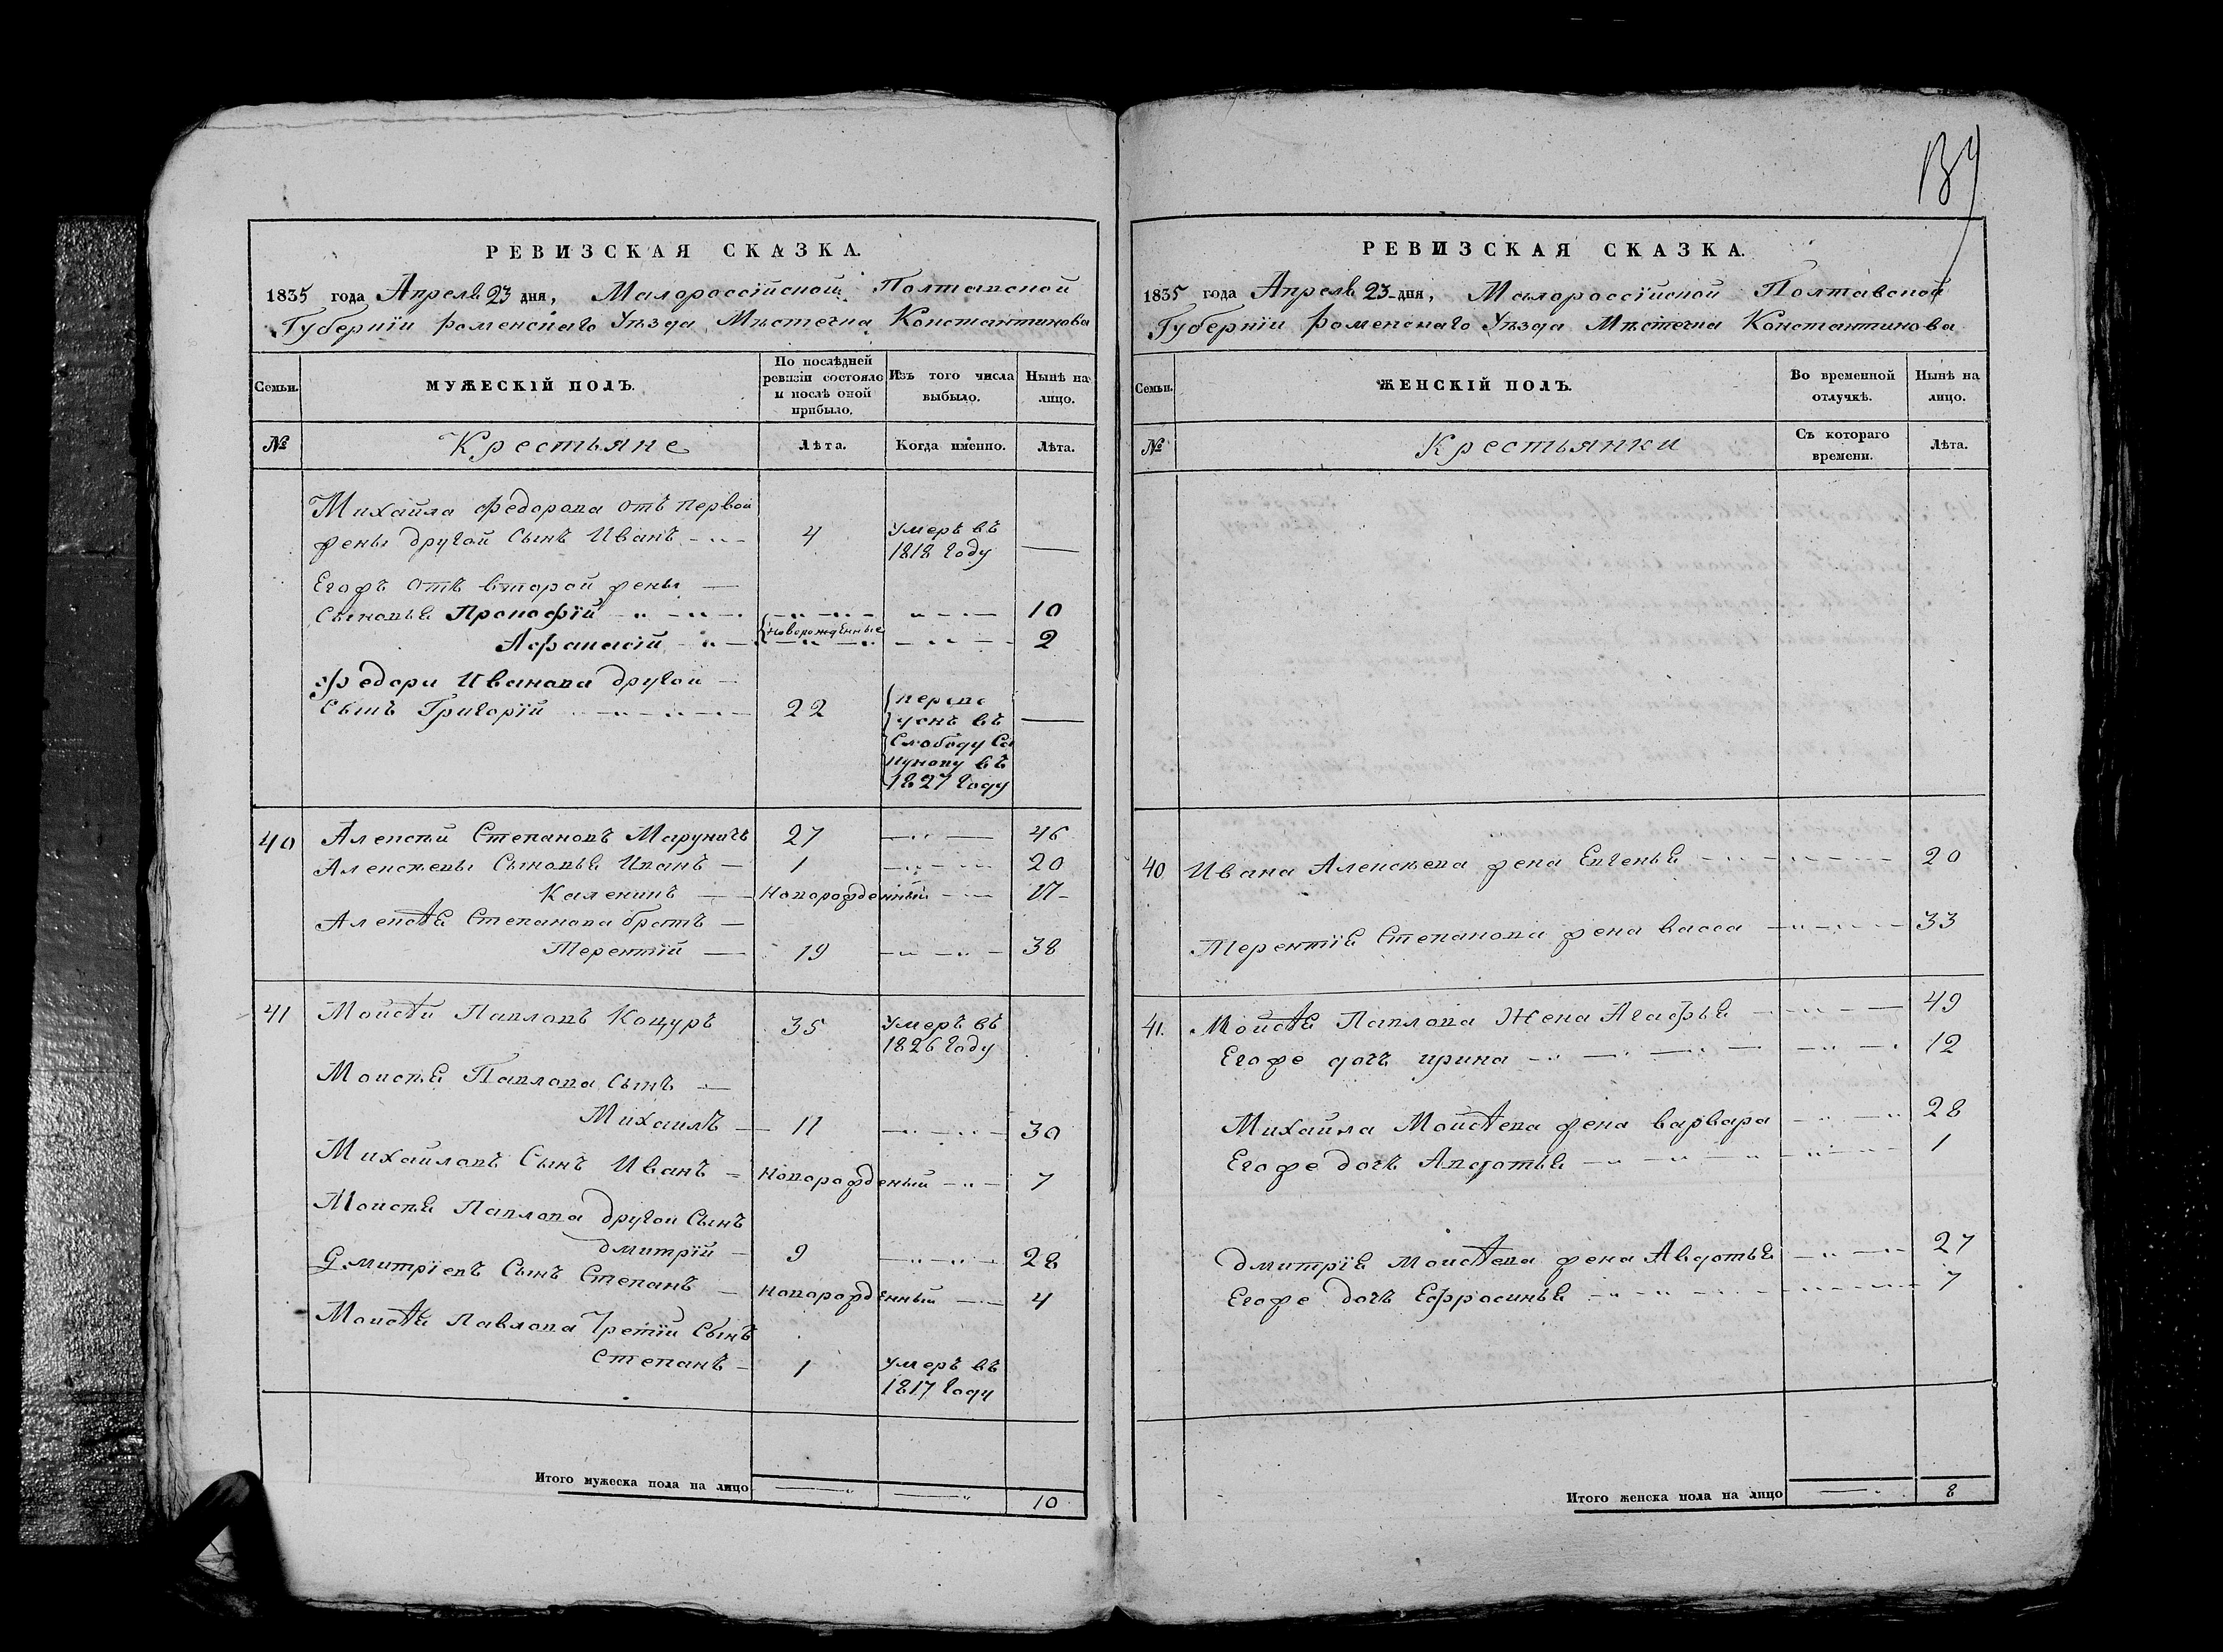 РЕВИЗСКАЯ СКАЗКА.
1835 года Апреля 23 дня, Малороссійской Полтавской
Губерніи роменскаго Уѣзда Мѣстечка Константинова
Семьи.
МУЖЕСКІЙ ПОЛЪ.
По послѣдней ревизіи состояло и послѣ оной прибыло.
Изъ того числа выбыло.
Нынѣ на лицо.
№
Крестьяне
Лѣта.
Когда именно.
Лѣта.
Михайла Федорова отъ первой
жены другой Сынъ Иванъ 4 умеръ въ 1818 году
Егожъ отъ второй жены
Сыновья Прокофій 10
новорожденные
Афанасій 2
Федора Иванова другой
Сынъ Григорій 22
въ
Слободу
въ
1827 году
40 Алексѣй Степановъ Маруничъ 27 46
Алексѣевы Сыновья Иванъ 1 20
Каленикъ новорожденный 17
Алексѣя Степанова братъ
Терентій 19 38
41 Мойсѣй Павловъ Коцуръ 35 умеръ въ 1826 году
Мойсѣя Павлова Сынъ
Михаилъ 11 30
Михайловъ Сынъ Иванъ новорожденый 7
Мойсѣя Павлова другой Сынъ
дмитрій 9 28
Дмитріевъ Сынъ Степанъ новорожденный 4
Мойсѣя Павлова Третій Сынъ
Степанъ 1 умеръ въ 1817 году
Итого мужеска пола на лицо 10
РЕВИЗСКАЯ СКАЗКА.
1835 года Апреля 23 дня, Малороссійской Полтавской
Губерніи роменскаго Уѣзда Мѣстечка Константинова
Семьи.
ЖЕНСКІЙ ПОЛЪ.
Во временной отлучкѣ.
Нынѣ на лицо.
№
Крестьянки
Съ котораго времени.
Лѣта.
40 Ивана Алексѣева жена Евгенья 20
Терентія Степанова жена васса 33
41. Мойсѣя Павлова Жена Агафья 49
Егоже дочь ирина 12
Михайла Мойсѣева жена варвара 28
Егоже дочь Авдотья 1
Дмитрія мойсѣева жена Авдотья 27
Егоже дочь Ефросинья 7
Итого женска пола на лицо 8